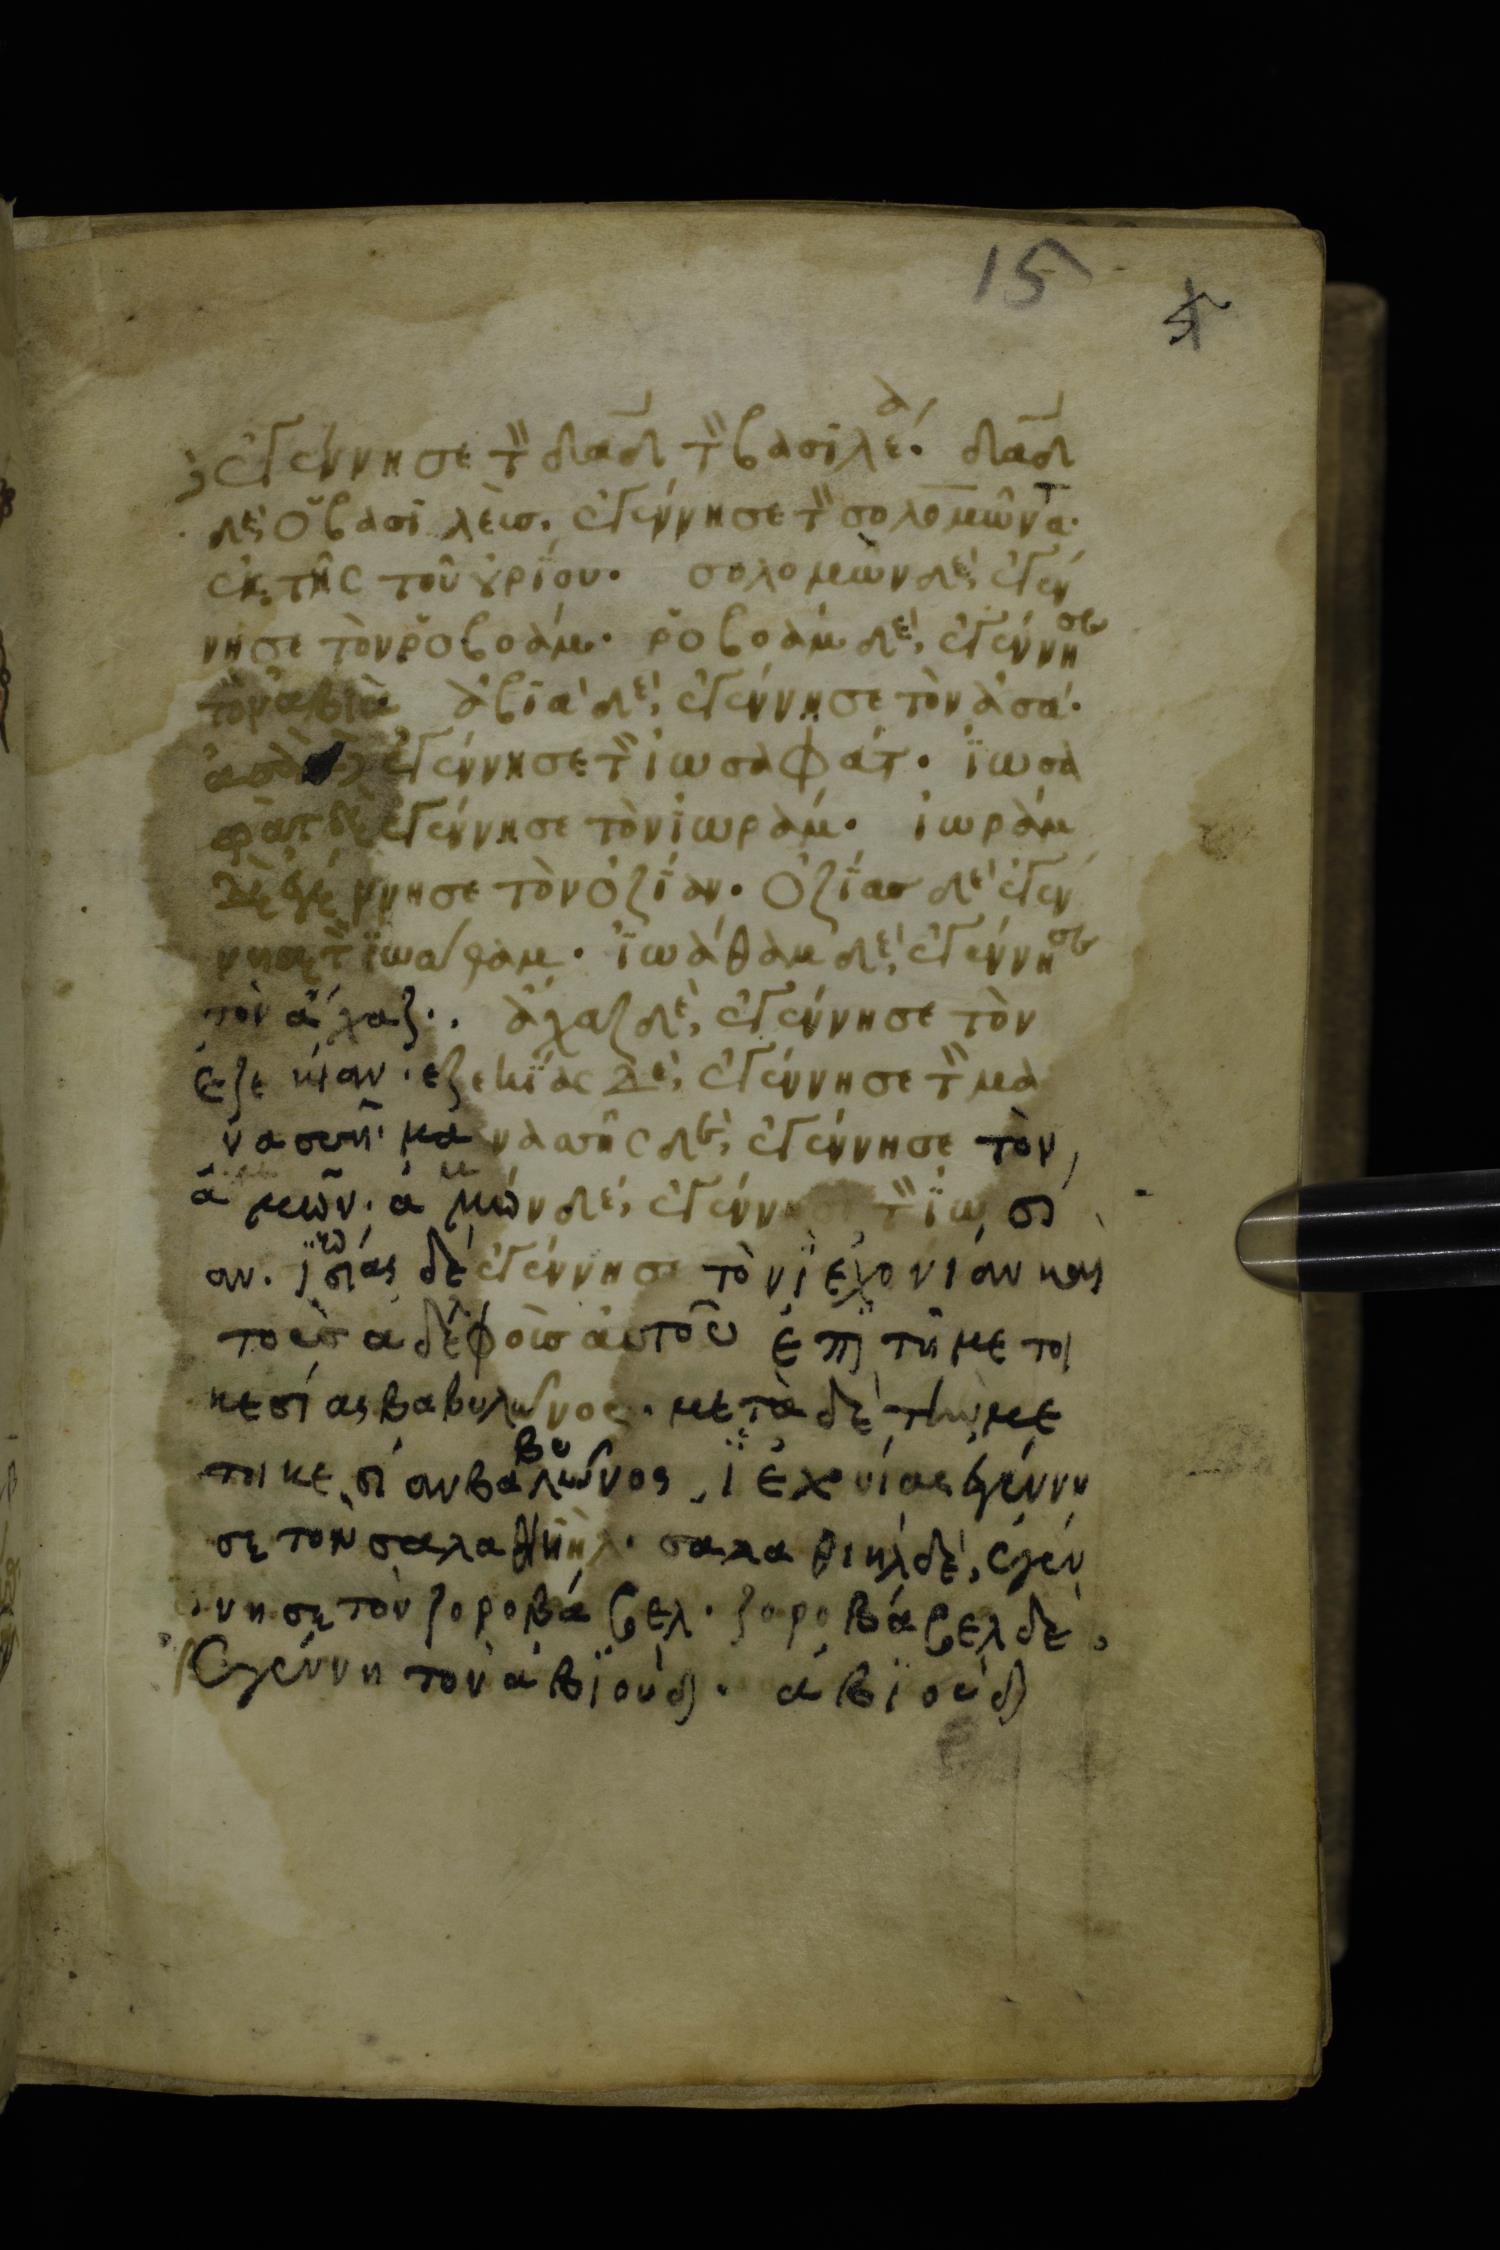 15
ἐγέννησε τ̏ δαδ τ̏ βασιλέα. δαδ
δὲ ὁ βασιλὲισ. ἐγέννησε τ̏ σολομῶντα.
ἐκ τῆς τοῦ ὀυρίου. σολομὼν δὲ, ἐγέν
νησε τὸν ῥοβοάμ. ῥοβοάμ δὲ, ἐγέννησε
τὸν ἀβιὰ ἀβϊὰ δὲ, ἐγέννησε τὸν ἀσά.
ἀσὰ ἐγέννησε τ̏ ἰωσαφάτ. ϊωσὰ
φὰτ δὲ ἐγέννησε τὸν ἰωράμ. ἰωράμ
δὲ ἐγέννησε τὸν ὀζΐαν. ὀζΐασ δὲ ἐγέν
νησε τ̏ ϊωάθαμ. ϊωάθαμ δὲ, ἐγέννησε
τὸν ἄχαζ.. ἄχαζ δὲ, ἐγέννησε τὸν
ἐζεκίαν. ἐζεκΐας δὲ, ἐγέννησε τ̏ μα
νασσῆ. μανασῆς δὲ, ἐγέννησε τὸν,
ἀμῶν. ἀμών δὲ, ἐγέννησε τ̏ ϊωσί
αν. ϊωσίας δὲ ἐγέννησε τὸν ϊεχονίαν και
τοὺσ ἀδελφοὶσ ἀυτοῦ ἐπὶ τῆ μετοι
κεσίας βαβυλῶνος. μετὰ δὲ τὴν με
τοικεσίαν βαβυλῶνος, ϊεχονίας ἐγέννη
σε τὸν σαλαθιήλ. σαλαθιηλ δὲ, ἐγέν
νησε τὸν ζοροβάβελ. ζοροβάβελ δὲ,
ἐγέννη τὸν ἀβϊούδ. ἀβϊούδ